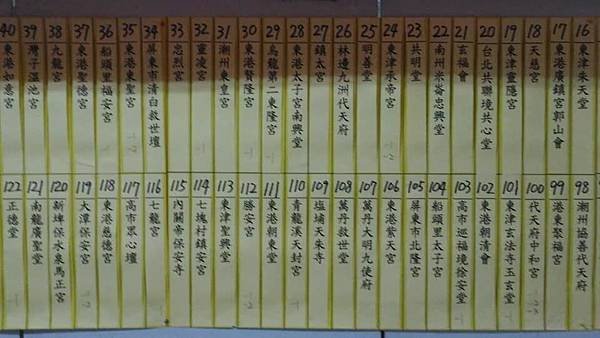 16 東津朱天堂
17 東港廣鎮宮郭山會
18 天慈宮
19 東津靈隱宮
20 台北共聯境共心堂
21 玄福會
22 南州米崙忠興堂
23 共明堂
24 東津承帝宮 -2
25 明善堂
26 林邊九洲代天府
27 鎮太宮
28 東港太子宮南興堂
29 烏龍第二東隆宮
30 東港賢隆宮
31 潮州東皇宮
32 靈凌宮
33 忠烈宮
34 屏東市清白救世壇
35 東港東聖宮
36 船頭里福安宮
37 東港聖德宮
38 九龍宮
39 灣子溫池宮
40 東港如意宮
98 潮州協善代天府
99 東港東聚福宮
100 代天府中和宮
101 東津玄法寺玉玄堂
102 東港朝清會
103 高市巡福境徐安堂 -1
104 船頭里太子宮
105 屏東市北隆宮
106 東港紫天宮
107 萬丹大明九使府
108 萬丹救世堂
109 塩埔天朱寺
110 青龍溪天封宮 -1
111 東港朝東堂
112 勝安宮 -2
113 東津聖興堂
114 七塊村鎮安宮
115 內關帝保安寺
116 七龍宮
117 高市思心壇
118 東港慈德宮
119 大潭保安宮
120 新埤保水泉馬正宮
121 南龍廣聖堂
122 正德堂